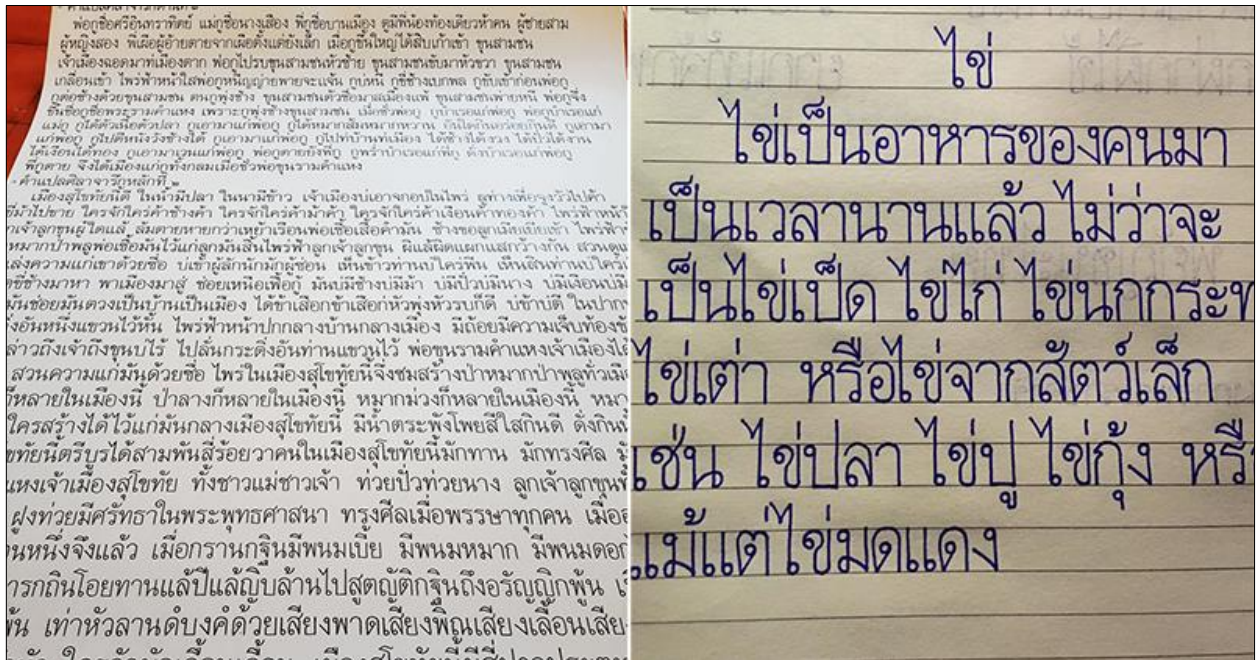 - คำแปลศิลาจารึกด้านที่ ๑
พ่อกูชื่อศรีอินทราทิตย์ แม่กูชื่อนางเสือง พี่กูชื่อบานเมือง ตูมีพี่น้องท้องเดียวห้าคน ผู้ชายสาม
ผู้หญิงสอง พี่เผือผู้อ้ายตายจากเผือตั้งแต่ยังเล็ก เมื่อกูขึ้นใหญ่ได้สิบเก้าเข้า ขุนสามชน
เจ้าเมืองฉอดมาท่เมืองตาก พ่อกูไปรบขุนสามชนหัวซ้าย ขุนสามชนขับมาหัวขวา ขุนสามชน
เกลื่อนเข้า ไพร่ฟ้าหน้าใสพ่อกูหนีญญ่ายพายจะแจ้น กูบ่หนี กูขี่ช้างเบกพล กูขับเข้าก่อนพ่อกู
กูต่อช้างด้วยขุนสามชน ตนกูพุ่งช้าง ขุนสามชนตัวชื่อมาสเมืองแพ้ ขุนสามชนพ่ายหนี พ่อกูจึ่ง
ขึ้นชื่อกูชื่อพระรามคำแหง เพราะกูพุ่งช้างขุนสามชน เมื่อชั่วพ่อกู กูบำเรอแก่พ่อกู กูบำเรอแก่
แม่กู กูได้ตัวเนื้อตัวปลา กูเอามาแก่พ่อกู กูได้หมากส้มหมากหวาน อันใดกินอร่อยกินดี กูเอามา
แก่พ่อกู กูไปตีหนังวังช้างได้ กูเอามาแก่พ่อกู กูไปท่บ้านท่เมือง ได้ช้างได้งวง ได้ปั่วได้นาง
ได้เงือนได้ทอง กูเอามาเวนแก่พ่อกู พ่อกูตายยังพี่กู กูพร่ำบำเรอแก่พี่กู ดั่งบำเรอแก่พ่อกู
พี่กูตาย จึงได้เมืองแก่กูทั้งกลมเมื่อชั่วพ่อขุนรามคำแหง
- คำแปลศิลาจารึกหลักที่ ๒
เมืองสุโขทัยนี้ดี ในน้ำมีปลา ในนามีข้าว เจ้าเมืองบ่เอาจกอบในไพร่ ลูท่างเพื่อจูงวัวไปค้า
ขี่ม้าไปขาย ใครจักใคร่ค้าช้างค้า ใครจักใคร่ค้าม้าค้า ใครจักใคร่ค้าเงือนค้าทองค้า ไพร่ฟ้าหน้า
ล้มตายหายกว่าเหย้าเรือนพ่อเชื้อเสื้อคำมัน ช้างขอลูกเมียเยียเข้า ไพร่ฟ้า
หมากป่าพลูพ่อเชื้อมันไว้แก่ลูกมันสิ้นไพร่ฟ้าลูกเจ้าลูกขุน ผิแล้ผิดแผกแสกว้างกัน สวนดู
แล่งความแก่เขาด้วยซื่อ บ่เข้าผู้ลักนักมักผู้ซ่อน เห็นข้าวท่านบ่ใคร่พีน เห็นสินท่านบ่ใคร่
ขี่ช้างมาหา พาเมืองมาสู่ ช่อยเหนือเฟื้อกู้ มันบ่มีช้างบ่มีม้า บ่มีปั่วบ่มีนาง บ่มีเงือนบ่มี
มันช่อยมันตวงเป็นบ้านเป็นเมือง ได้ข้าเสือกข้าเสือหัวพุ่งหัวรบก็ดี บ่ฆ่าบ่ตี ในปาก
อันหนึ่งแขวนไว้หั้น ไพร่ฟ้าหน้าปกกลางบ้านกลางเมือง มีถ้อยมีความเจ็บท้องข้อง
กล่าวถึงเจ้าถึงขุนบ่ไร้ ไปลั่นกระดิ่งอันท่านแขวนไว้ พ่อขุนรามคำแหงเจ้าเมืองได้
สวนความแก่มันด้วยซื่อ ไพร่ในเมืองสุโขทัยนี้จึ่งชมสร้างป่าหมากป่าพลูทั่วเมือง
ก็หลายในเมืองนี้ ป่าลางก็หลายในเมืองนี้ หมากม่วงก็หลายในเมืองนี้
ใครสร้างได้ไว้แก่มันกลางเมืองสุโขทัยนี้ มีน้ำตระพังโพยสีใสกินดี ดั่งกิน
สุโขทัยนี้ตรีบูรได้สามพันสี่ร้อยวาคนในเมืองสุโขทัยนี้มักทาน มักทรงศีล
คำแหงเจ้าเมืองสุโขทัย ทั้งชาวแม่ชาวเจ้า ท่วยปั่วท่วยนาง ลูกเจ้าลูกขุน
ฝูงท่วยมีศรัทธาในพระพุทธศาสนา ทรงศีลเมื่อพรรษาทุกคน เมื่อ
หนึ่งจึงแล้ว เมื่อกรานกฐินมีพนมเบี้ย มีพนมหมาก มีพนมดอก
การกถินโอยทานแล้ปีแล้ญิบล้านไปสูดญัติกฐินถึงอรัญญิกพู้น
พู้น เท่าหัวลานดำบงคำด้วยเสียงพาดเสียงพิณเสียงเลื้อนเสียง
ไข่
ไข่เป็นอาหารของคนมา
เป็นเวลานานแล้ว ไม่ว่าจะ
เป็นไข่เป็ด ไข่ไก่ ไข่นกกระท
ไข่เต่า หรือไข่จากสัตว์เล็ก
เช่น ไข่ปลา ไข่ปู ไข่กุ้ง หรื
แม้แต่ไข่มดแดง